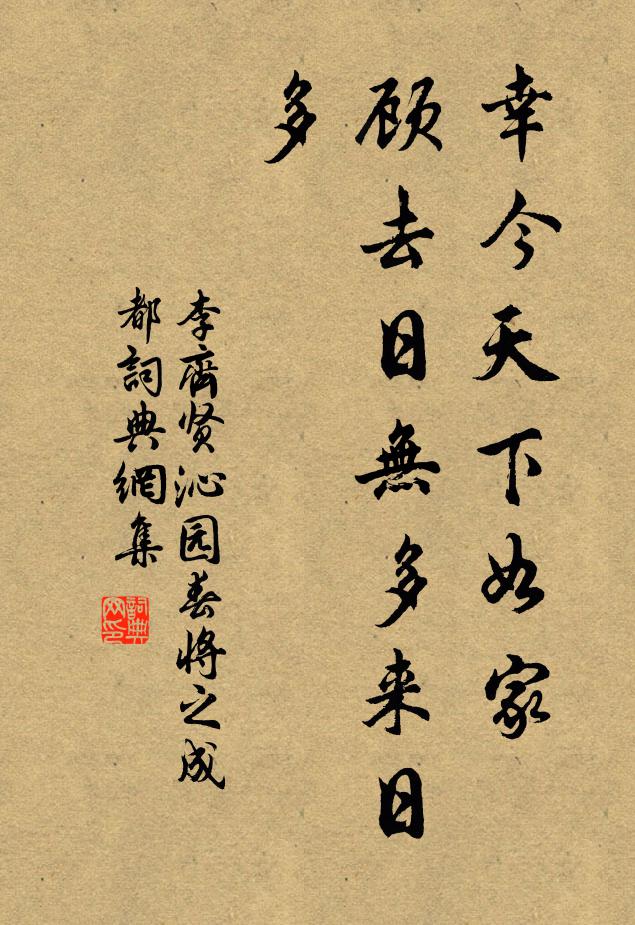 幸今天下如家
顾去日無多来日
多
李齊贤沁园春将之成
都詞典網集
詞典网印